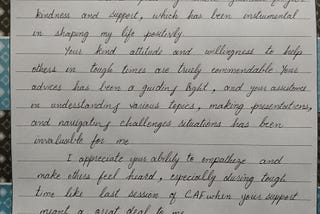 kindness and support, which has been instumental
in shaping my life positively
Your kind attitude and willingness to help
others in tough times are truly commendable Your
advices has been a guiding light, and your assistance
in understanding various topics, making presentations,
and navigating challenges situations has been
invaluable for me
I appreciate your ability to empathize and
make others feel heard, especially during tough
time like last session of CAF when your support
meant a great deal to me